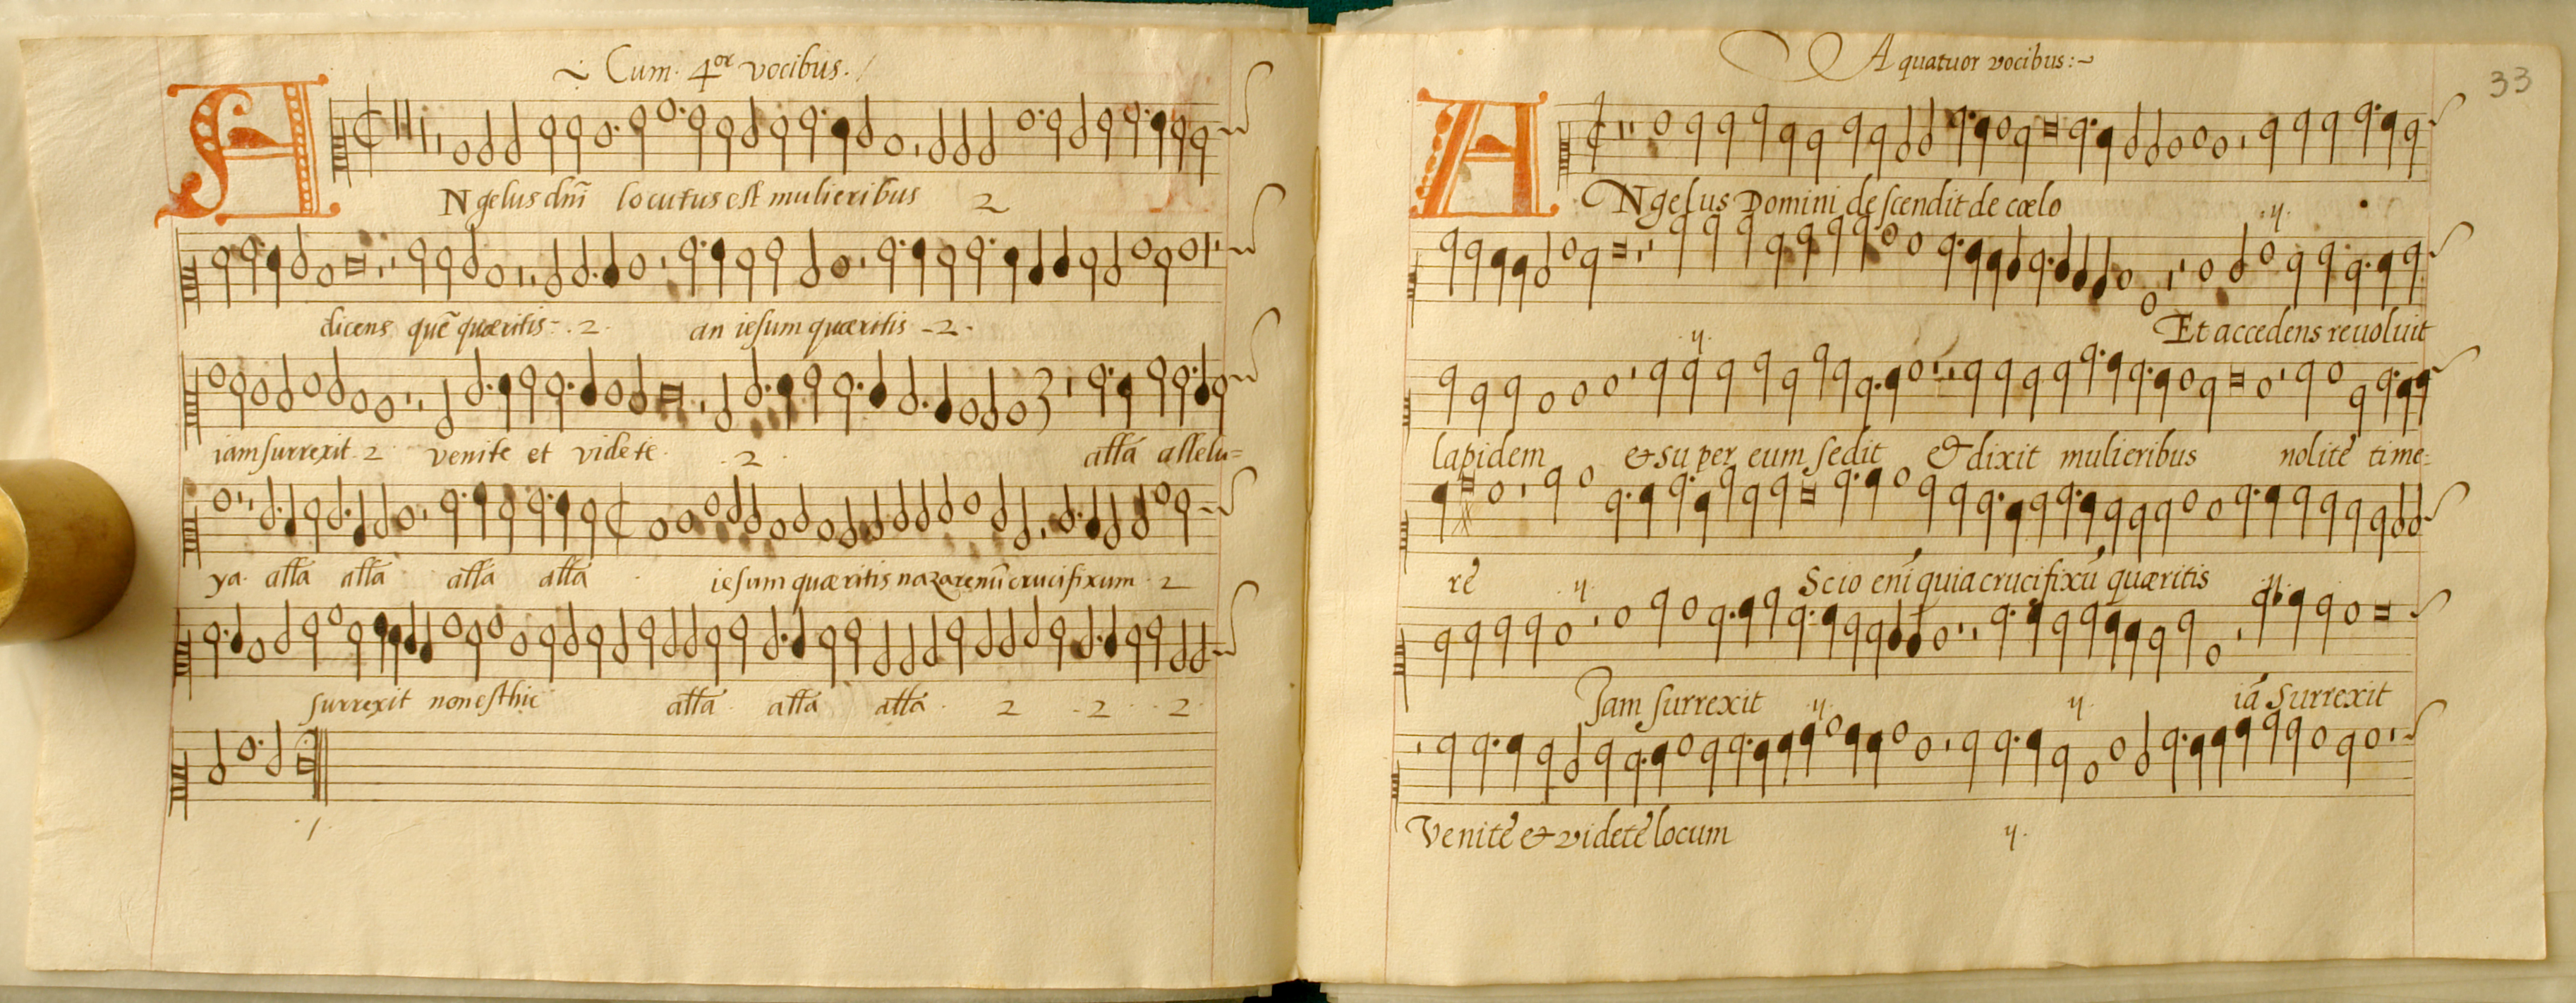 Cum. 4or vocibus.
ANgelus dñi locutus est mulieribus 2
dicens quē quæritis .2. an iesum quæritis 2.
iam surrexit 2 venite et videte .2. alla allelu=
ya. alla alla alla alla iesum quæritis nazarenū crucifixum 2
surrexit non est hic alla alla alla 2 2 2
A quatuor vocibus:~
33
ANgelus Domini descendit de cœlo .y.
Et accedens reuoluit
.y.
lapidem & super eum sedit & dixit mulieribus nolite time=
re .y. Scio enī quia crucifixū quæritis
Iam surrexit .y. y. iā surrexit
Venite & videte locum y.